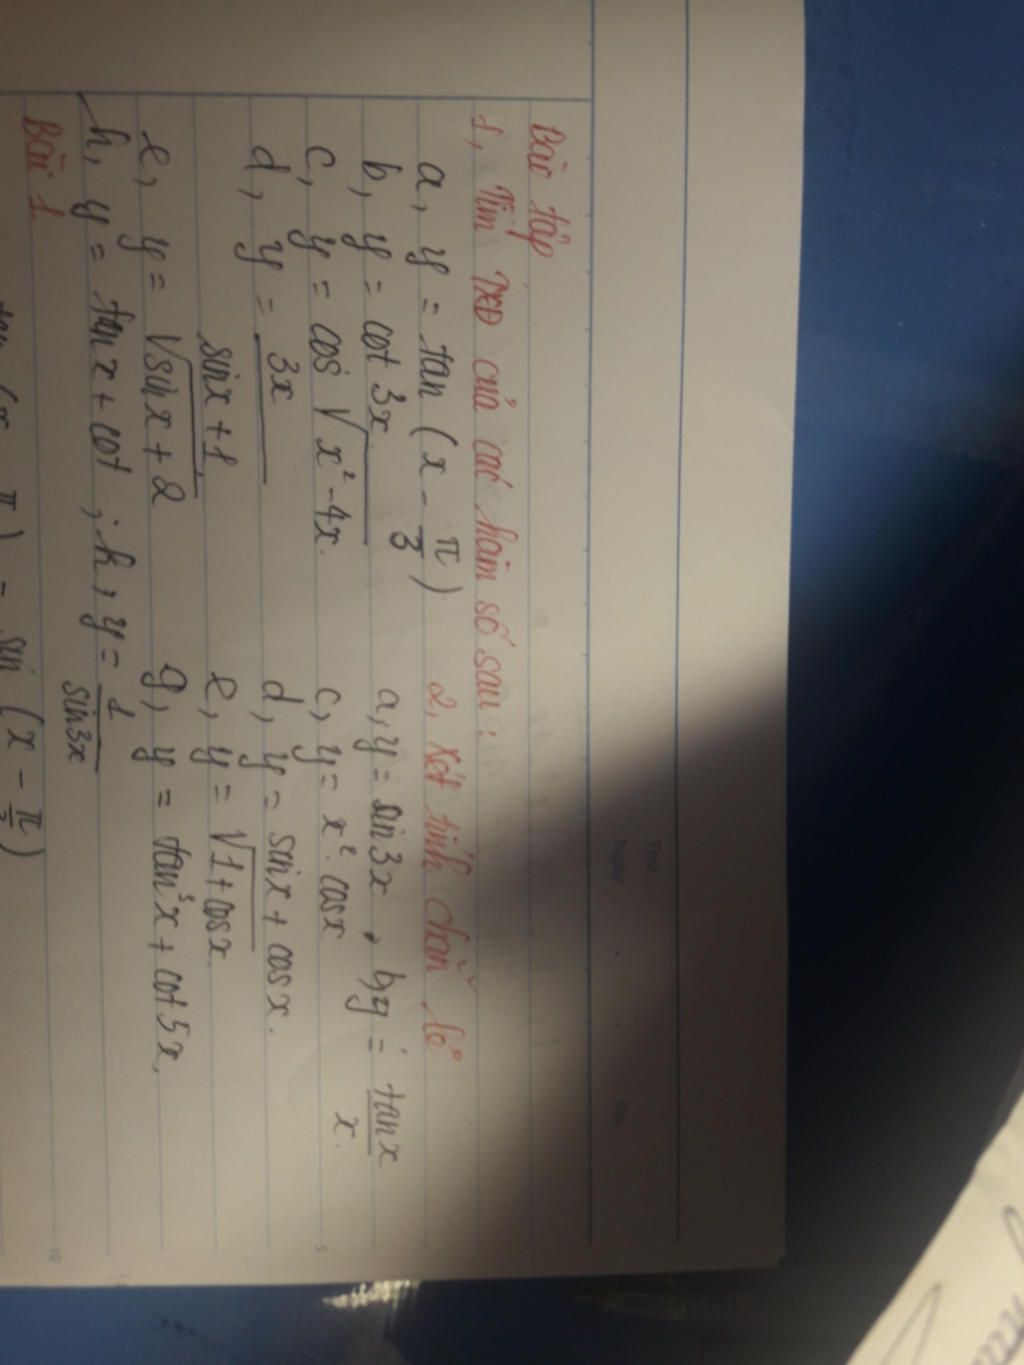 Thứ
Ngày . . No.
Bài tập
1, Tìm TXĐ của các hàm số sau :
a, y = tan (x - π/3)
b, y = cot 3x
c, y = cos √x² - 4x.
d, y = 3x
sinx + 1
e, y = √sinx + 2
h, y = tanx + cot ; k, y = 1
sin3x
2, xét tính chẵn lẻ
a, y = sin3x , b, y = tanx
x.
c, y = x². cosx
d, y = sinx + cosx.
e, y = √1 + cosx.
g, y = tan³x + cot5x.
Bài 1
tan (x π) = sin (x - π)